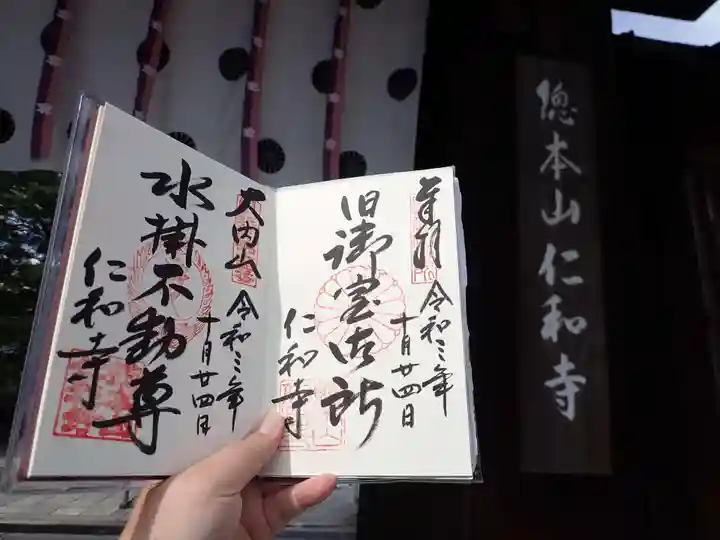 奉拝
令和三年
十月廿四日
旧御室御所
仁和寺
大内山
令和三年
十月廿四日
水掛不動尊
仁和寺
総本山仁和寺